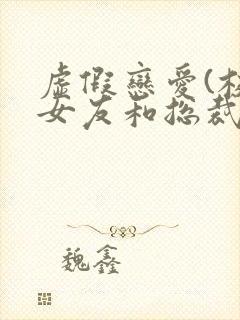 虛假戀愛(校
女友和総裁
魏鑫